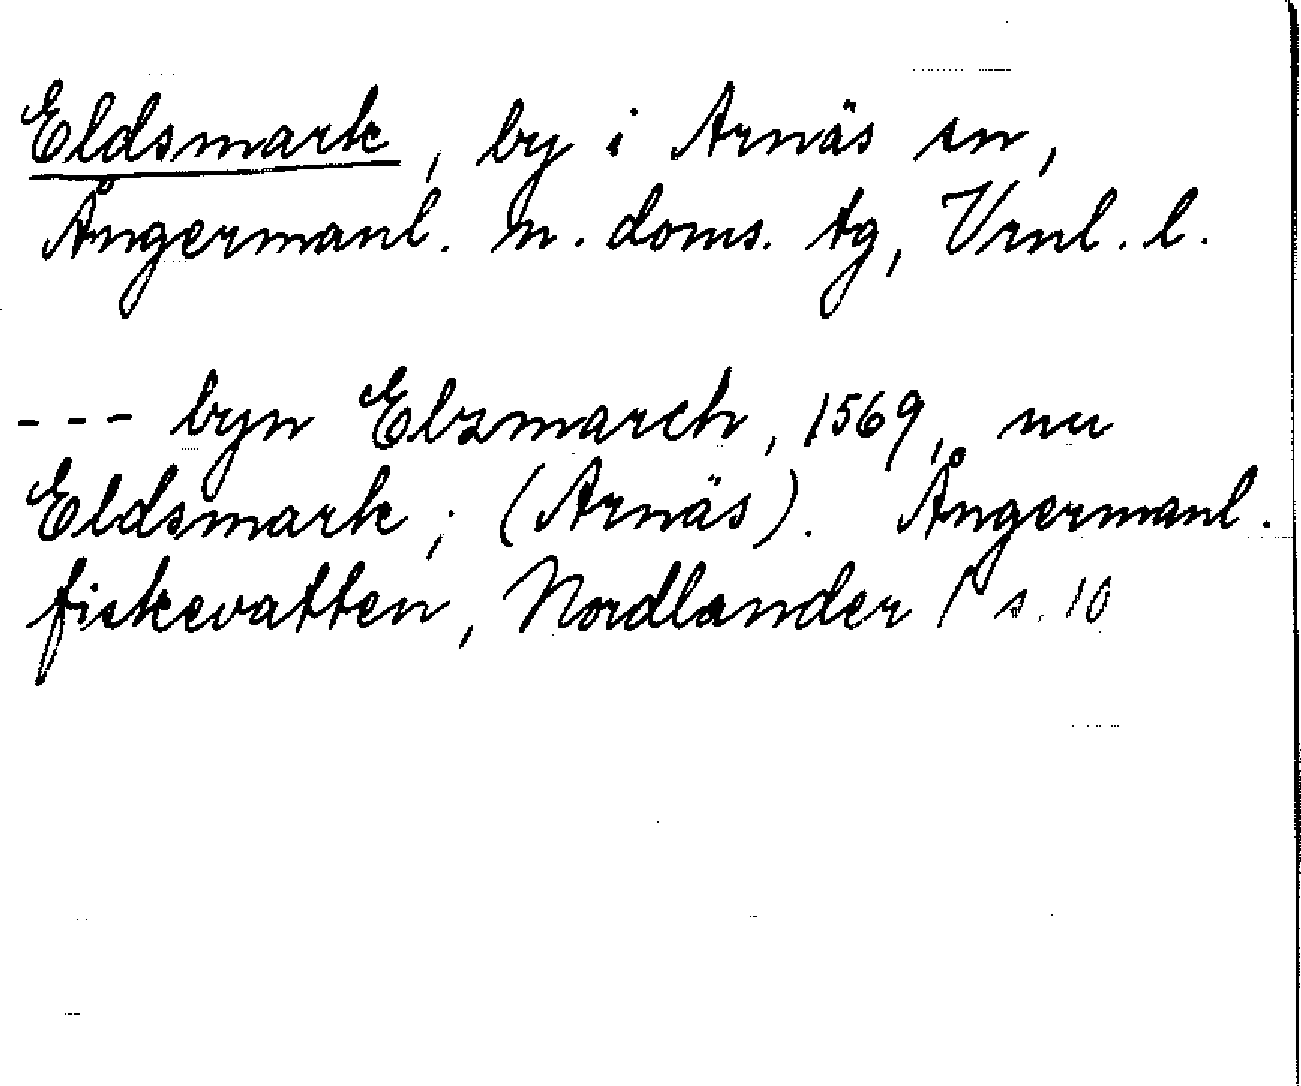 Eldsmark, by i Arnäs sn,
Ångermanl. m. doms. tg, Vrnl. l.
--- byn Elzmarch, 1569, nu
Eldsmark; (Arnäs). Ångermanl.
fiskevatten, Nordlander / s. 10